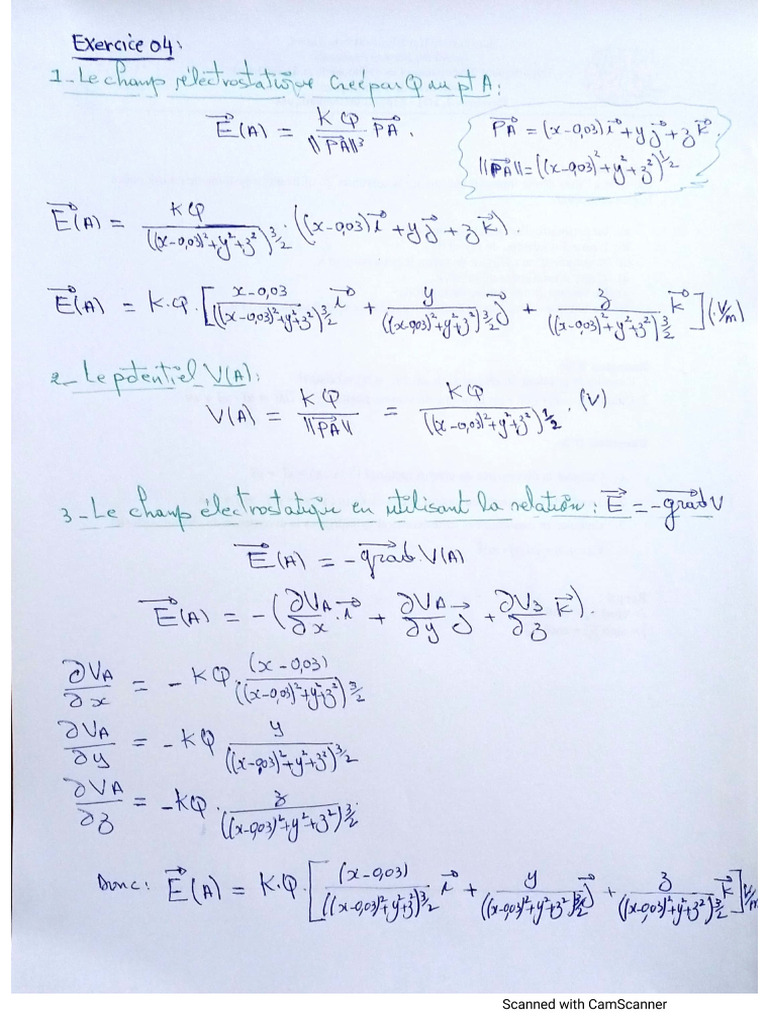 Exercice 04:
1-Le champ électrostatique creé par Q au pt A:
E⃗(A) = KQ/||PA⃗||³ PA⃗.
PA⃗ = (x-0,03)i⃗+yj⃗+zk⃗.
||PA⃗||=((x-0,03)²+y²+z²)^1/2
E⃗(A) = KQ/((x-0,03)²+y²+z²)^3/2 . ((x-0,03)i⃗+yj⃗+zk⃗).
E⃗(A) = K.Q.[x-0,03/((x-0,03)²+y²+z²)^3/2 i⃗ + y/((x-0,03)²+y²+z²)^3/2 j⃗ + z/((x-0,03)²+y²+z²)^3/2 k⃗](V/m)
2-Le potentiel V(A):
V(A) = KQ/||PA⃗|| = KQ/((x-0,03)²+y²+z²)^1/2 . (V)
3-Le champ électrostatique en utilisant la relation: E⃗ = -grad⃗ V
E⃗(A) = -grad⃗.V(A)
E⃗(A) = -(∂VA/∂x .i⃗ + ∂VA/∂y j⃗ + ∂V3/∂z k⃗).
∂VA/∂x = -KQ. (x-0,03)/((x-0,03)²+y²+z²)^3/2
∂VA/∂y = -KQ y/((x-0,03)²+y²+z²)^3/2
∂VA/∂z = -KQ. z/((x-0,03)²+y²+z²)^3/2
Donc: E⃗(A) = K.Q.[(x-0,03)/((x-0,03)²+y²+z²)^3/2 i⃗ + y/((x-0,03)²+y²+z²)^3/2 j⃗ + z/((x-0,03)²+y²+z²)^3/2 k⃗]V/m
Scanned with CamScanner